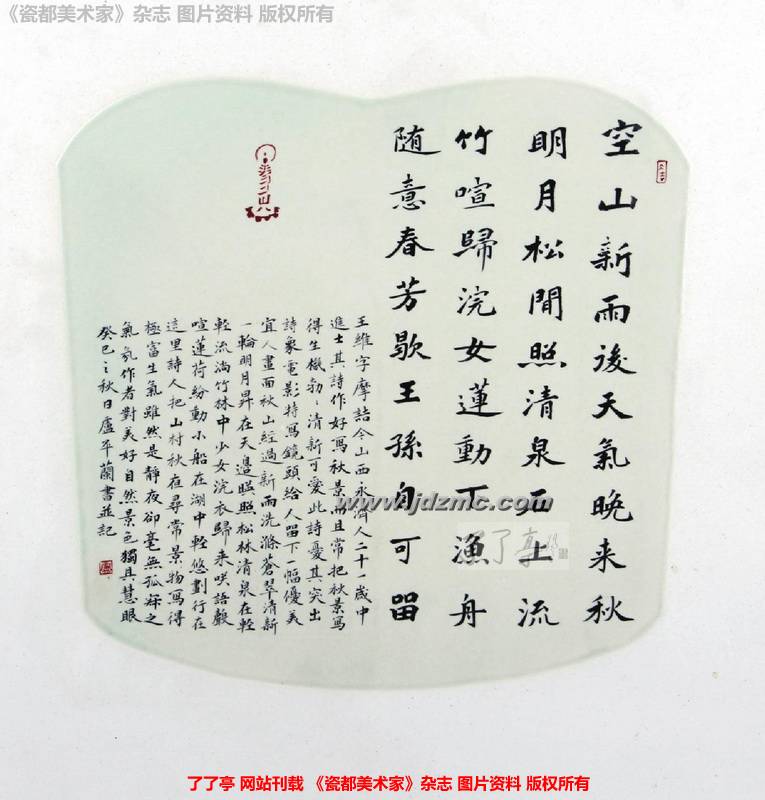 《瓷都美术家》杂志 图片资料 版权所有
空山新雨後天氣晚来秋
明月松間照清泉石上流
竹喧歸浣女蓮動下漁舟
随意春芳歇王孫自可留
王維字摩詰今山西永濟人二十一歲中
進士其詩作好寫秋景而且常把秋景寫
得生機勃〻清新可愛此詩憂其突出
詩象電影特寫鏡頭給人留下一幅優美
宜人畫面秋山經過新雨洗滌蒼翠清新
一輪明月昇在天邉照松林清泉在輕
輕流淌竹林中少女浣衣歸来咲語聲
喧蓮荷紛動小船在湖中輕悠劃行在
這里詩人把山村秋夜尋常景物寫得
極富生氣雖然是靜夜卻毫無孤寂之
氣氛作者對美好自然景色獨具慧眼
癸巳之秋日盧平蘭書並記
www.jdzmc.com
了了亭
了了亭 网站刊载 《瓷都美术家》杂志 图片资料 版权所有